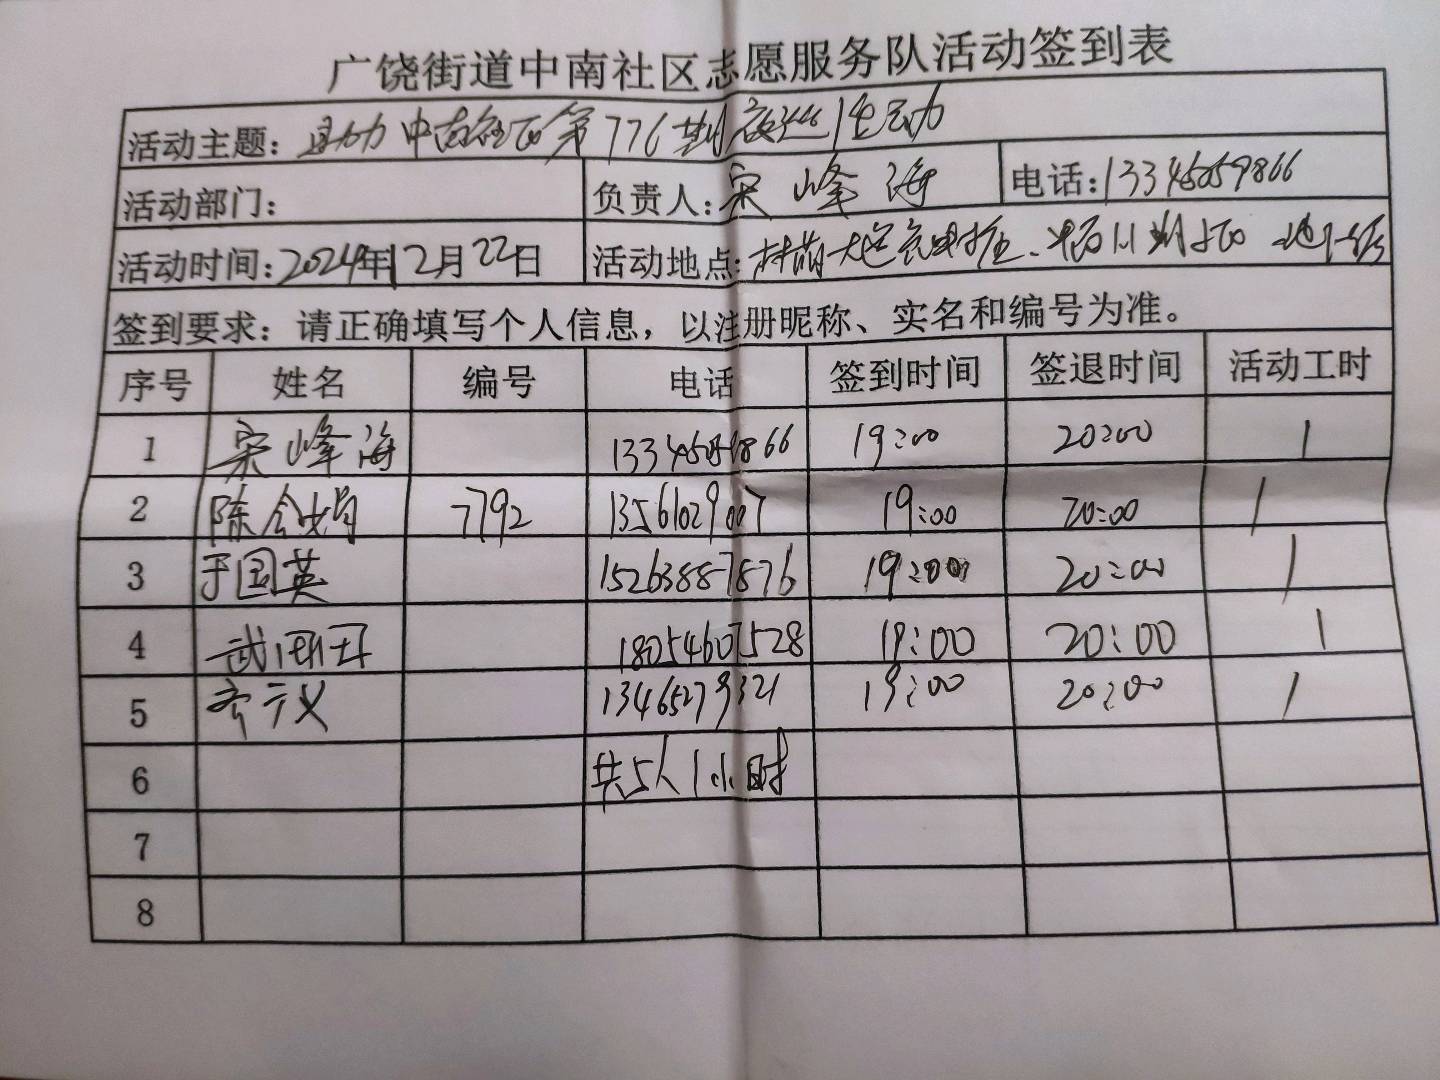 广饶街道中南社区志愿服务队活动签到表
活动主题: 中南社区第776期
活动部门: 负责人: 宋峰海 电话: 13345059866
活动时间: 2024年12月22日 活动地点:
签到要求: 请正确填写个人信息，以注册昵称、实名和编号为准。
序号 姓名 编号 电话 签到时间 签退时间 活动工时
1 宋峰海 13345059866 19:00 20:00 1
2 陈会娟 7792 13561029007 19:00 20:00 1
3 于国英 15263887876 19:00 20:00 1
4 武 18054607528 19:00 20:00 1
5 义 13465279321 19:00 20:00 1
6 共5人1小时
7
8